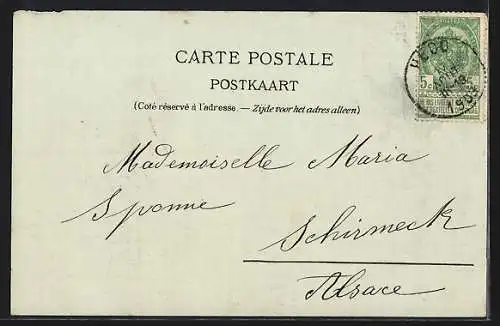 CARTE POSTALE
POSTKAART
(Coté réservé à l'adresse. — Zijde voor het adres alleen)
Mademoiselle Maria
Sponne
Schirmeck
Alsace
5